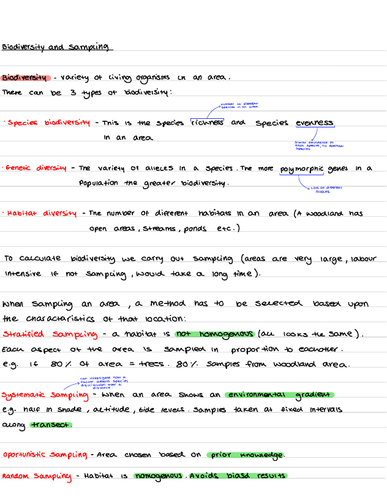 Biodiversity and Sampling
Biodiversity - Variety of living organisms in an area.
There can be 3 types of biodiversity:
number of different species in an area
• Species biodiversity - This is the species richness and species evenness
in an area
• Genetic diversity - The variety of alleles in a species. The more polymorphic genes in a
Population the greater biodiversity.
• Habitat diversity - The number of different habitats in an area (A woodland has
open areas, streams, ponds etc.)
To calculate biodiversity we carry out sampling (areas are very large, labour
intensive if not sampling, would take a long time).
When sampling an area, a method has to be selected based upon
the characteristics of that location:
Stratified Sampling - a habitat is not homogenous (all looks the same).
Each aspect of the area is sampled in proportion to eachother.
e.g. if 80% of area = trees. 80% samples from woodland area.
Systematic Sampling - When an area shows an environmental gradient
e.g. half in shade, altitude, tide levels. Samples taken at fixed intervals
along transect
Oportunistic Sampling - Area chosen based on prior knowledge.
Random Sampling - Habitat is homogenous. Avoids biasd results